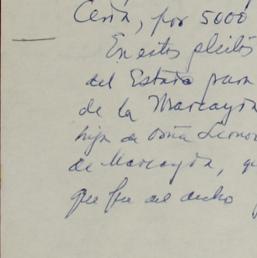 Ceria, por 5000
En estos pleitos
del Estado para
de la Marcayón
hija de Doña Leonor
de Marcayón, qu
que fue del dicho